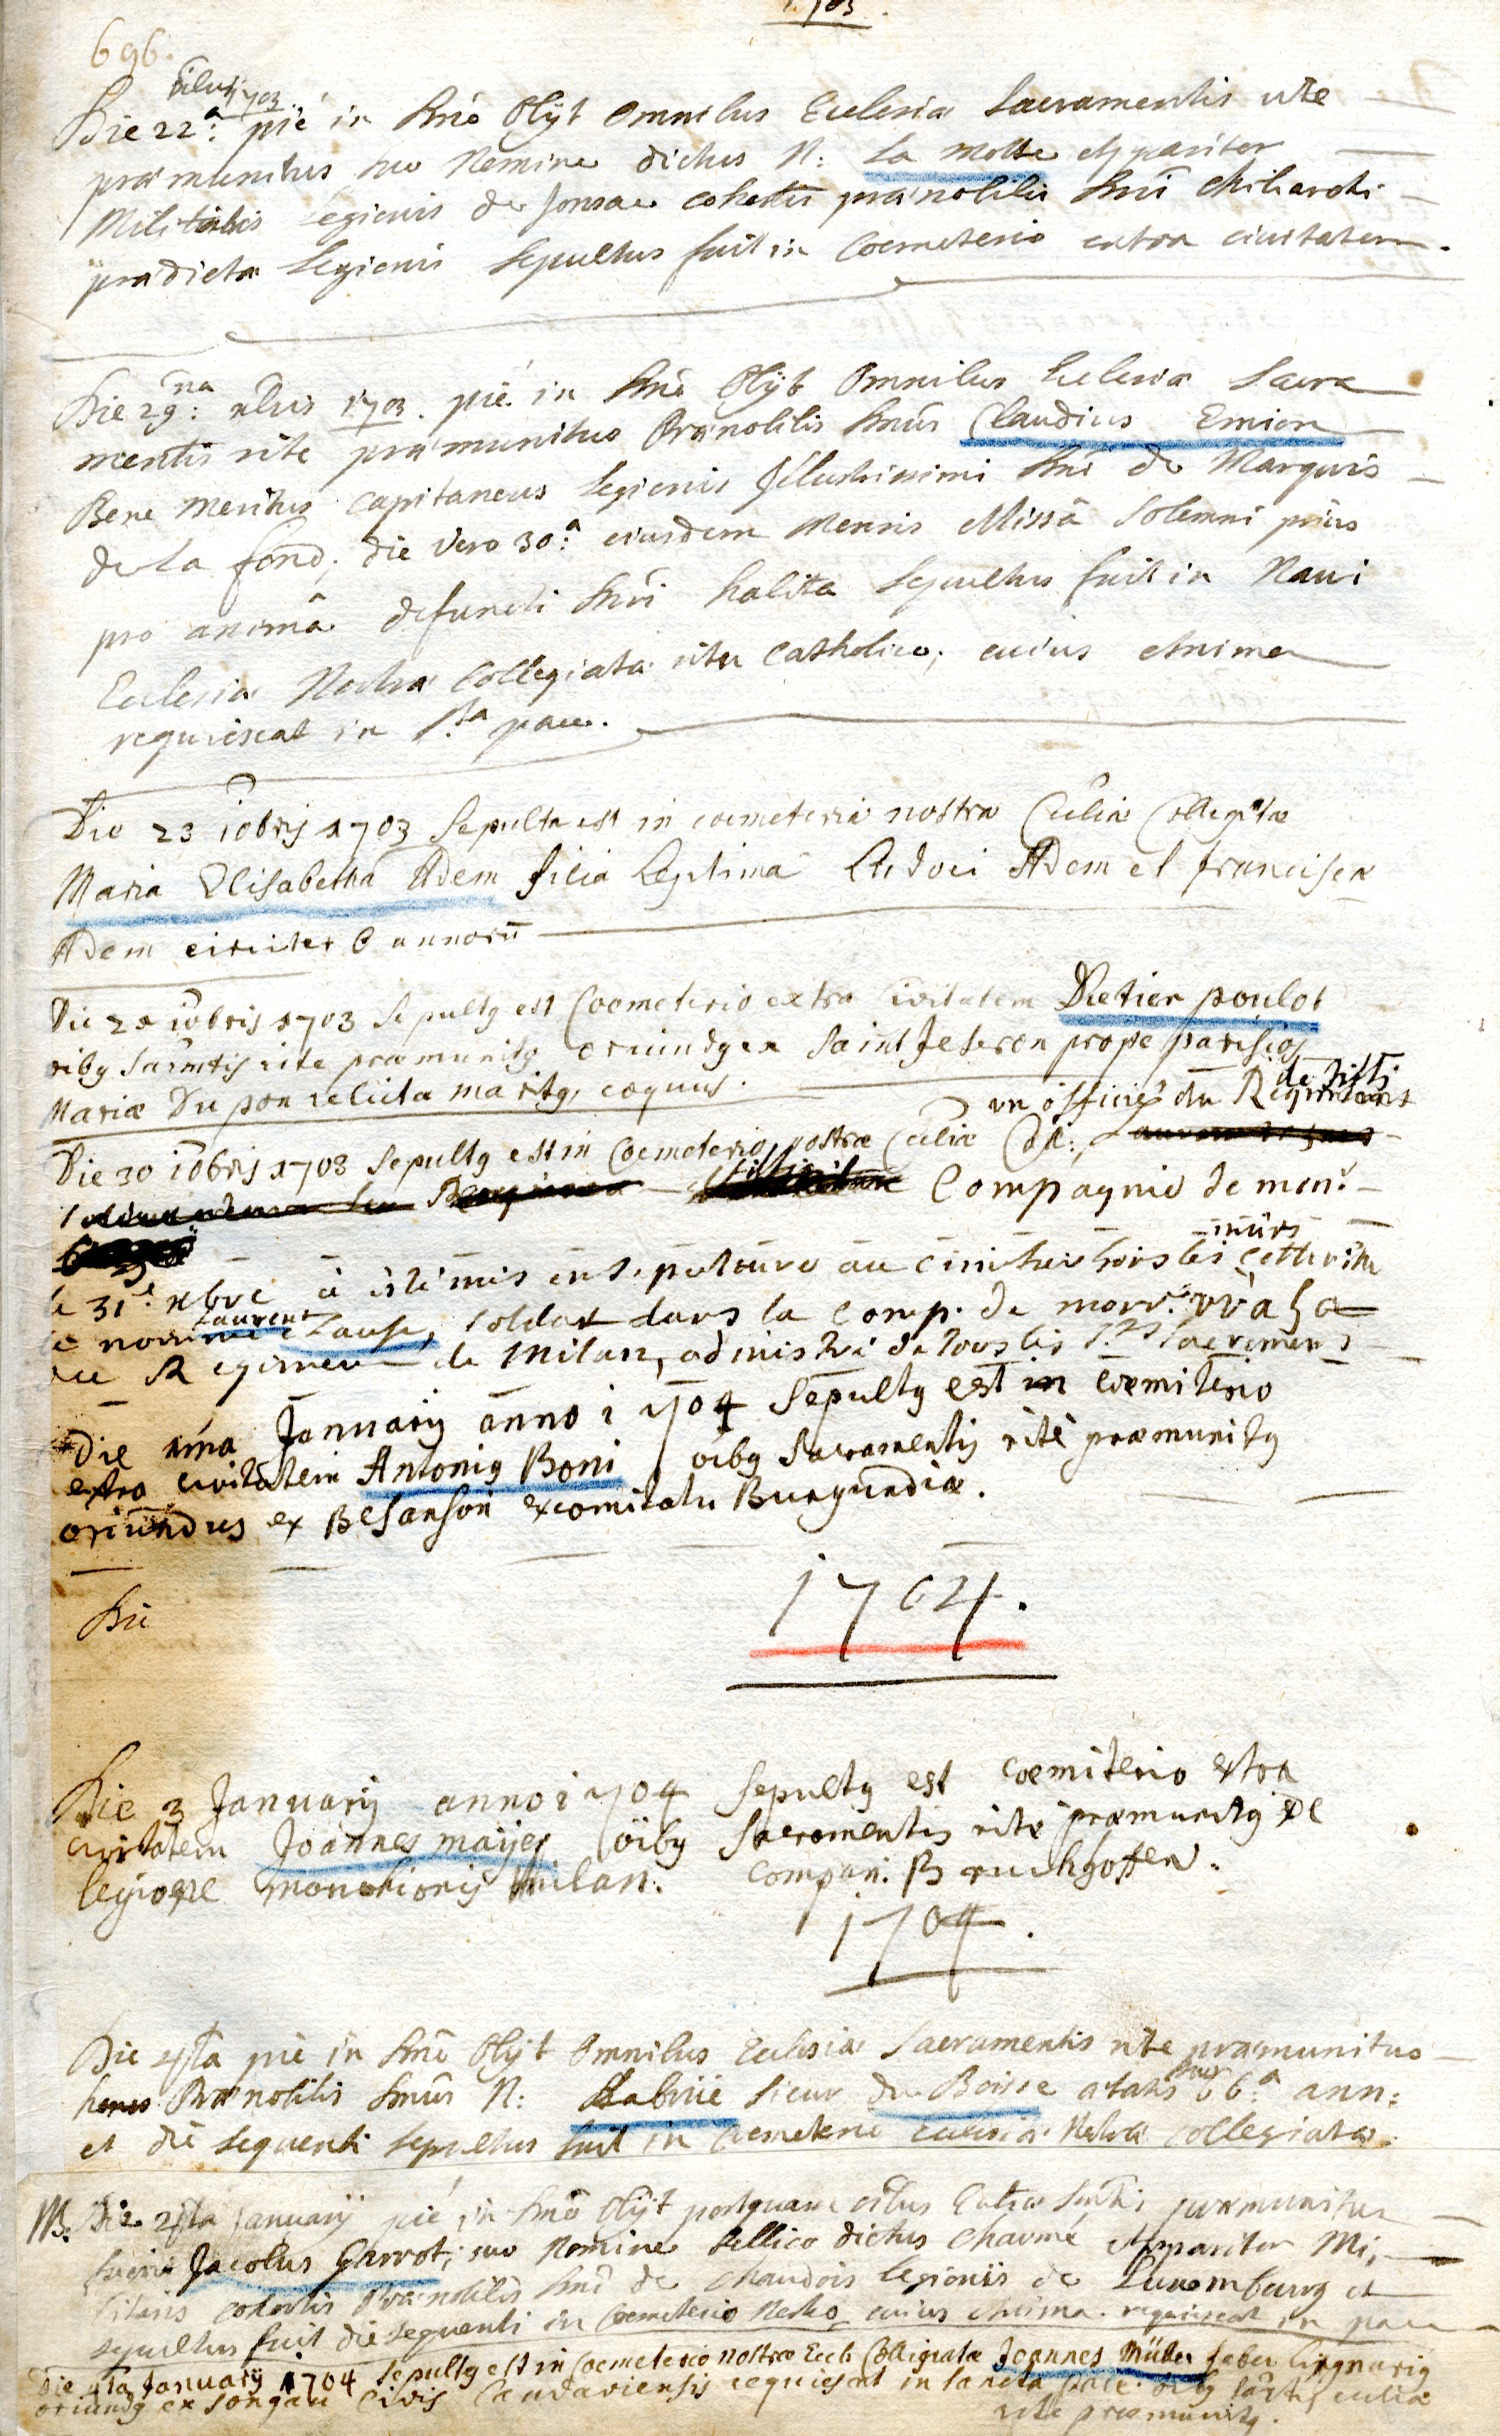 1703.
696.
xbris 1703.
Die 22a: pie in Dno Obijt Omnibus Ecclesiæ Sacramentis rite
præmunitus suo Nomine dictus N: La Motte Appariter
Militaris Legionis de Jonsac cohortis prænobilis Dni Chiliarchi
prædictæ Legionis Sepultus fuit in Coemeterio extra civitatem.
Die 29na: xbris 1703. pie in Dno Obijt Omnibus Ecclesiæ Sacra
mentis rite præmunitus Prænobilis Dnus Claudius Emion
Bene Meritus Capitaneus Legionis Illustrissimi Dni de Marquis
de La fond; die Vero 30a: eiusdem Mensis Missâ Solemni prius
pro animâ defuncti Dni habita Sepultus fuit in Navi
Ecclesiæ Nostræ Collegiatæ ritu Catholico; cuius Anima
requiescat in Sta pace.
Die 23 iobris 1703 Sepulta est in coemeterio nostræ Ecclîæ Collegiatæ
Maria Elisabetha Adem filia Legitima Ludoci Adem et francisca
Adem circiter 6 annorū
Die iobris 1703 Sepultg est Coemeterio extra Civitatem Dietier poulot
oibg Sacrmtis rite præmunitg oriundg ex Saint prope parisios
Mariæ Du pon relicta maritg, coquus.
un officié du Regiment
Die 30 iobris 1703 Sepultg est in Coemeterio nostræ Ecclîæ
Compagnie de monr.
murs
le 31e. xbre à êté mis en sepulture au cimitier hors les cette ville
Laurent
le nommé Lause, soldat dans la comp. de monr.
au Regiment de Milan, administré de tous les Sts Sacremens
Die 1ma Januarij anno 1704 Sepultg est in coemiterio
extra civitatem Antonig Boni oibg Sacramentis rite præmunitg
oriundus ex Besanson ex comitatu Burgundiæ.
Die
1704.
Die 3 Januarij anno 1704 Sepultg est coemiterio extra
civitatem Joannes maijer oibg Sacramentis rite præmunitg de
legione Milan: compan: Bruckhoffen.
1704.
Die 4ta pie in Dno Obijt Omnibus Ecclesiæ Sacramentis rite præmunitus
Prænobilis Dnus N: Labrüe Sieur du Boisse ætatis suæ 66a ann:
et die sequenti sepultus fuit in Coemeterio ecclesiæ Nostræ Collegiatæ.
NB. Die 4ta Januarij pie in Dno Obijt postquam præmunitus
fuerit Jacobus Garrot; suo Nomine bellico dictus Charmé Appariter Mi,
litaris cohortis Prænobilis Dni de Chaudois legionis de Luxembourg et
sepultus fuit die sequenti in Coemeterio Nostro cuius Anima requiescat in pace
Die 4ta Januarij 1704 Sepultg est in Coemeterio nostræ Eccli Collegiatæ Joannes Müller faber lignarig
oriundg ex songau Civis Landaviensis requiescat in sancta pace. oibg Sacrtis ecclîæ
rite præmunitg.